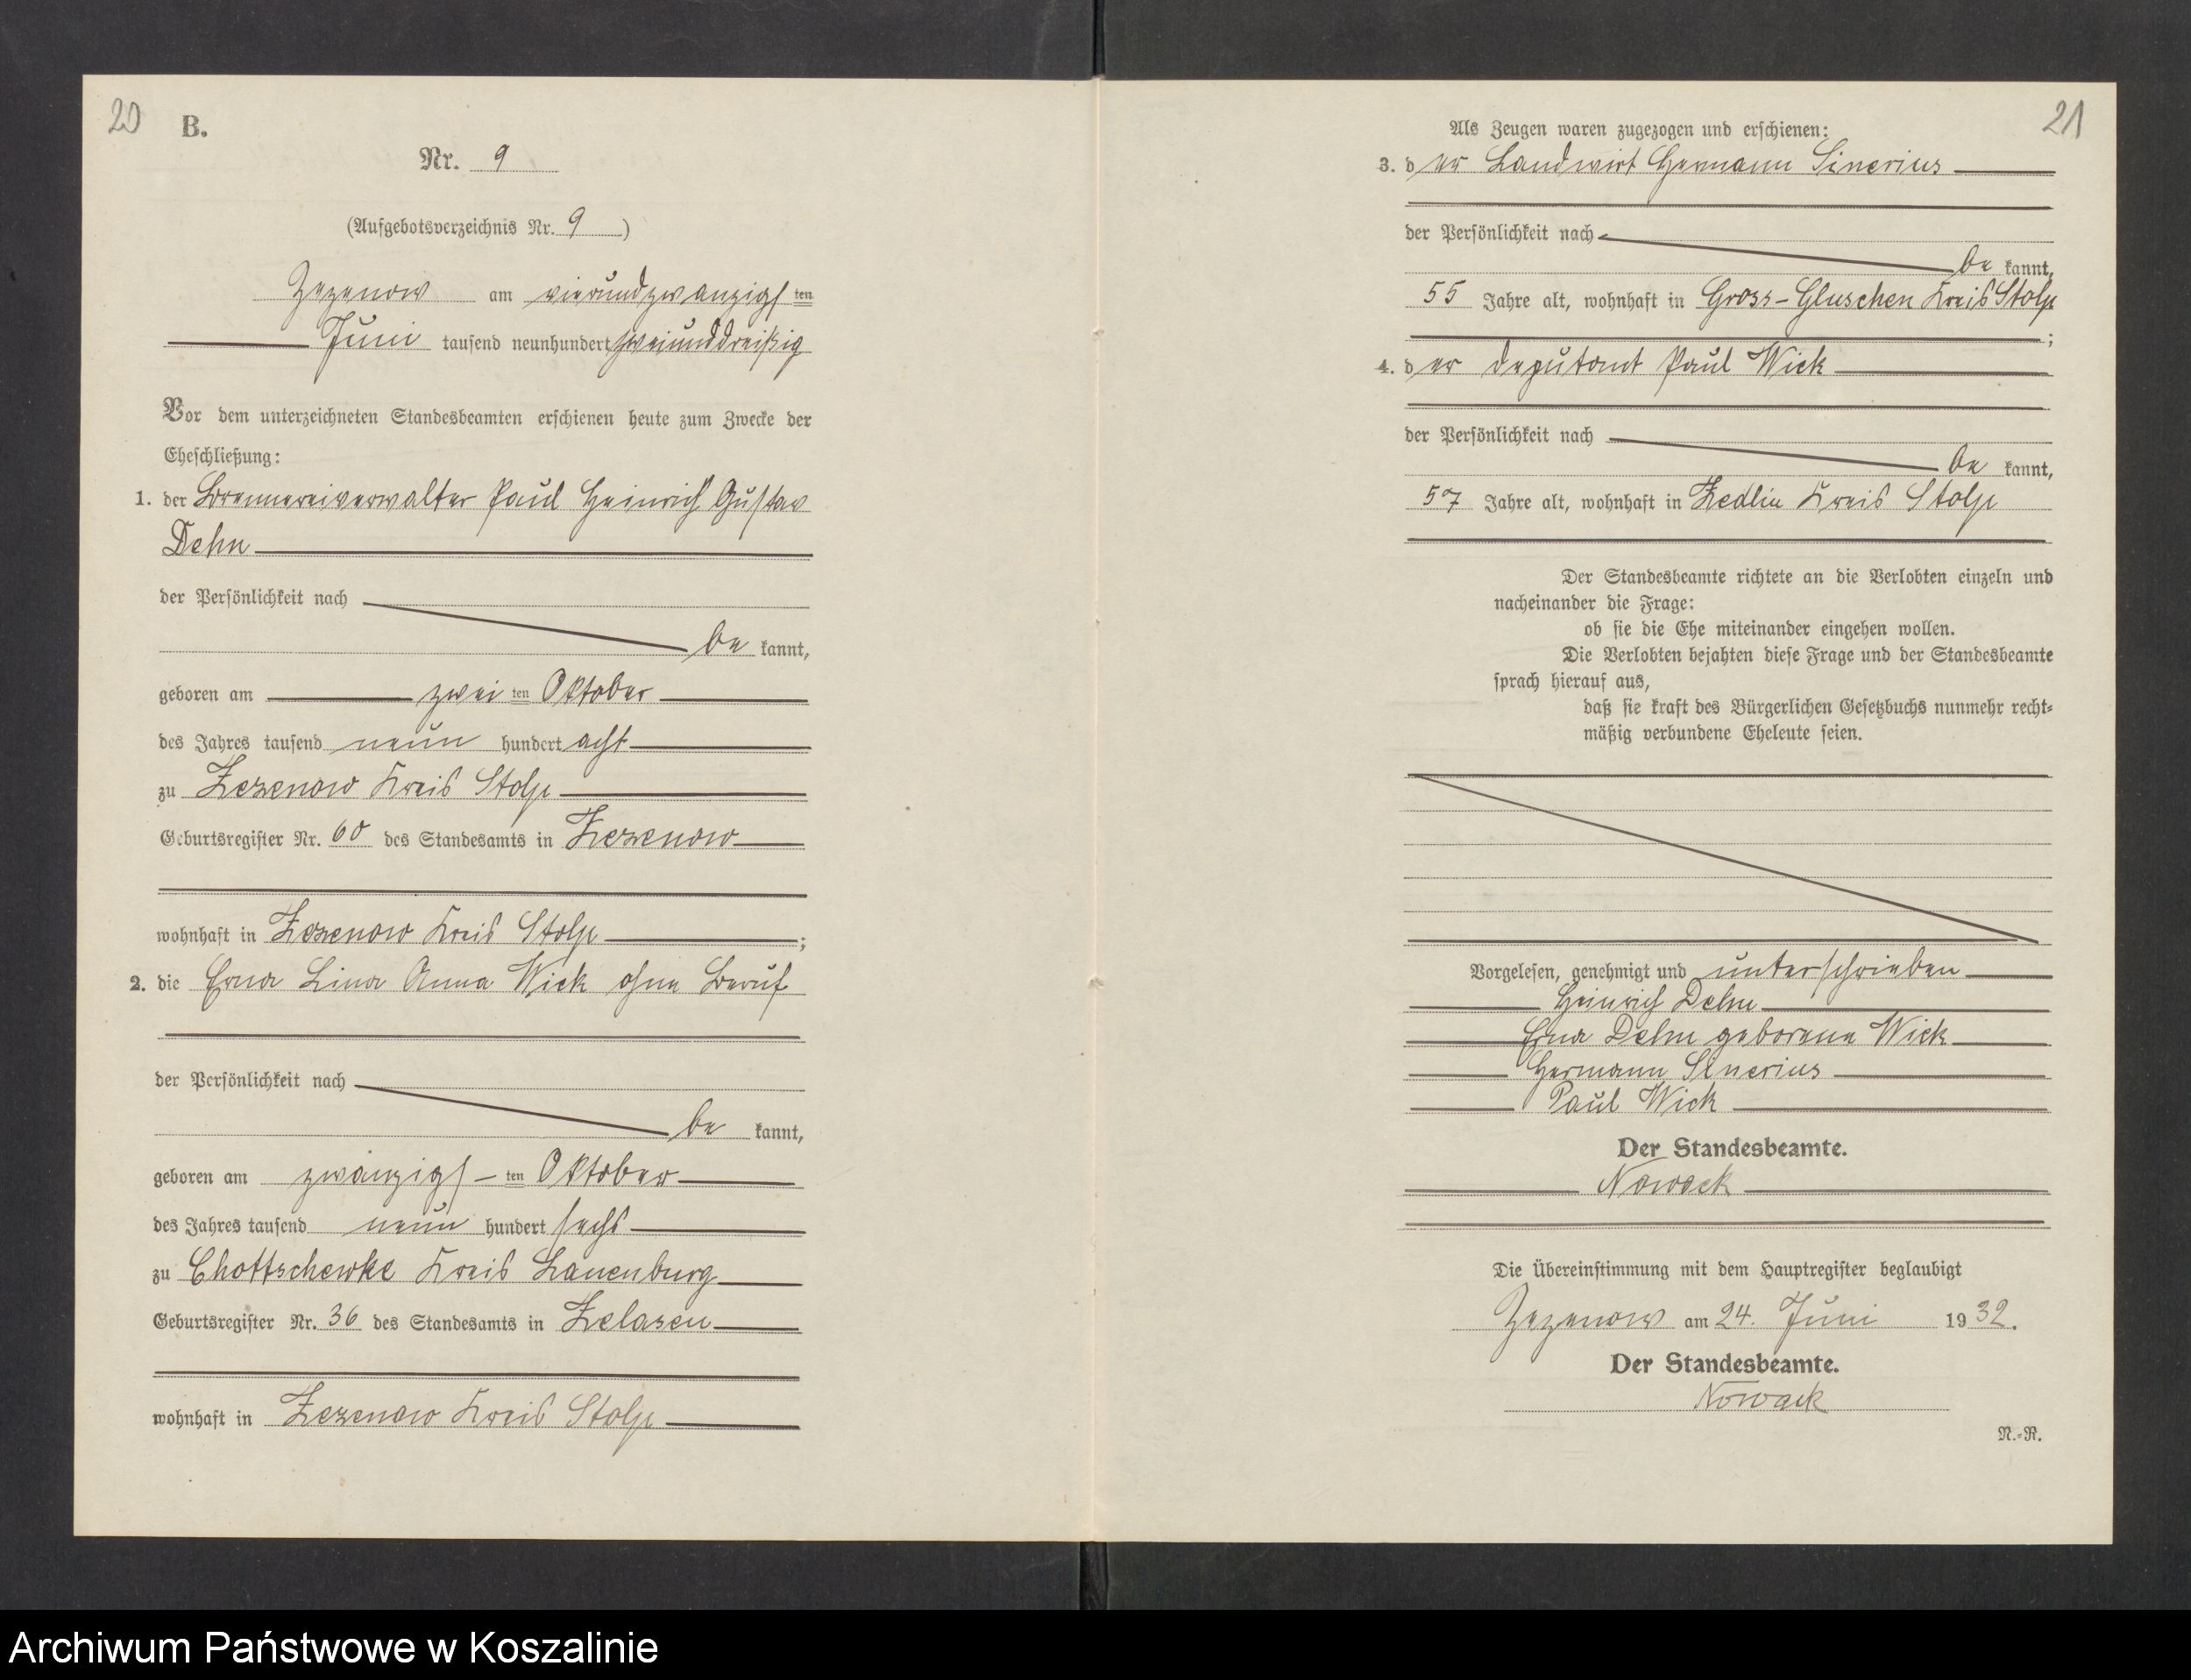 20
B.
Nr. 9
(Aufgebotsverzeichnis Nr. 9 )
Zezenow am vierundzwanzigsten
Juni tausend neunhundert zweiunddreißig
Vor dem unterzeichneten Standesbeamten erschienen heute zum Zwecke der
Eheschließung:
1. der Brennereiverwalter Paul Heinrich Gustav
Dehn
der Persönlichkeit nach
be kannt,
geboren am zwei ten Oktober
des Jahres tausend neun hundert acht
zu Zezenow Kreis Stolp
Geburtsregister Nr. 60 des Standesamts in Zezenow
wohnhaft in Zezenow Kreis Stolp ;
2. die Erna Lina Anna Wick ohne Beruf
der Persönlichkeit nach
be kannt,
geboren am zwanzigs - ten Oktober
des Jahres tausend neun hundert sechs
zu Chottschewke Kreis Lauenburg
Geburtsregister Nr. 36 des Standesamts in Zelasen
wohnhaft in Zezenow Kreis Stolp
21
Als Zeugen waren zugezogen und erschienen:
3. der Landwirt Hermann Sinerius
der Persönlichkeit nach
be kannt,
55 Jahre alt, wohnhaft in Gross-Gluschen Kreis Stolp
;
4. der Deputant Paul Wick
der Persönlichkeit nach
be kannt,
57 Jahre alt, wohnhaft in Zedlin Kreis Stolp
Der Standesbeamte richtete an die Verlobten einzeln und
nacheinander die Frage:
ob sie die Ehe miteinander eingehen wollen.
Die Verlobten bejahten diese Frage und der Standesbeamte
sprach hierauf aus,
daß sie kraft des Bürgerlichen Gesetzbuchs nunmehr recht-
mäßig verbundene Eheleute seien.
Vorgelesen, genehmigt und unterschrieben
Heinrich Dehn
Erna Dehn geborene Wick
Hermann Sinerius
Paul Wick
Der Standesbeamte.
Nowack
Die Übereinstimmung mit dem Hauptregister beglaubigt
Zezenow am 24. Juni 1932.
Der Standesbeamte.
Nowack
N.-R.
Archiwum Państwowe w Koszalinie